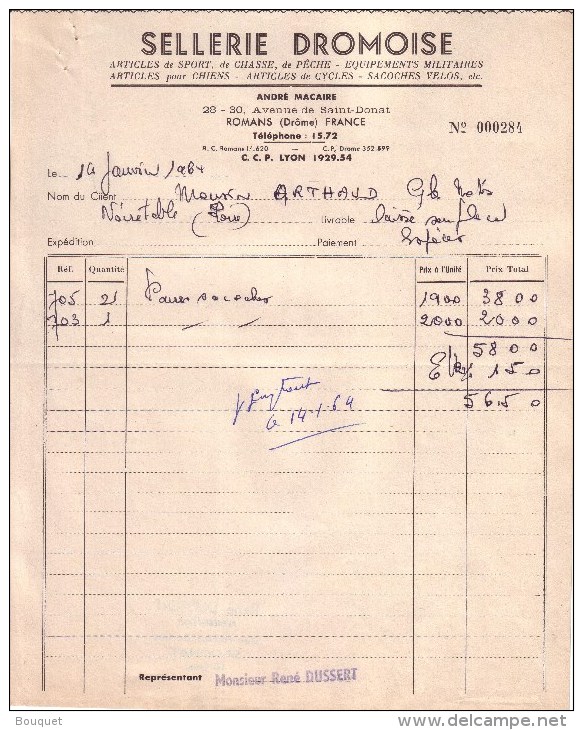 SELLERIE DROMOISE
ARTICLES de SPORT, de CHASSE, de PÊCHE - EQUIPEMENTS MILITAIRES
ARTICLES pour CHIENS - ARTICLES de CYCLES - SACOCHES VELOS, etc.
ANDRÉ MACAIRE
28 - 30, Avenue de Saint-Donat
ROMANS (Drôme) FRANCE
Nº 000284
Téléphone : 15.72
R. C. Romans 11.620 — C.P. Drome 352-899
C. C. P. LYON 1929.54
Le 14 Janvier 1964
Nom du Client ARTHAUD
Noirétable (Loire) livrable laissé sur place
Expédition Paiement Espèces
Réf. Quantité Prix à l'Unité Prix Total
705 2 Paires sacoches 1900 3800
703 1 2000 2000
5800
150
5650
le 14-1-64
Représentant Monsieur René DUSSERT
Bouquet
www.delcampe.net